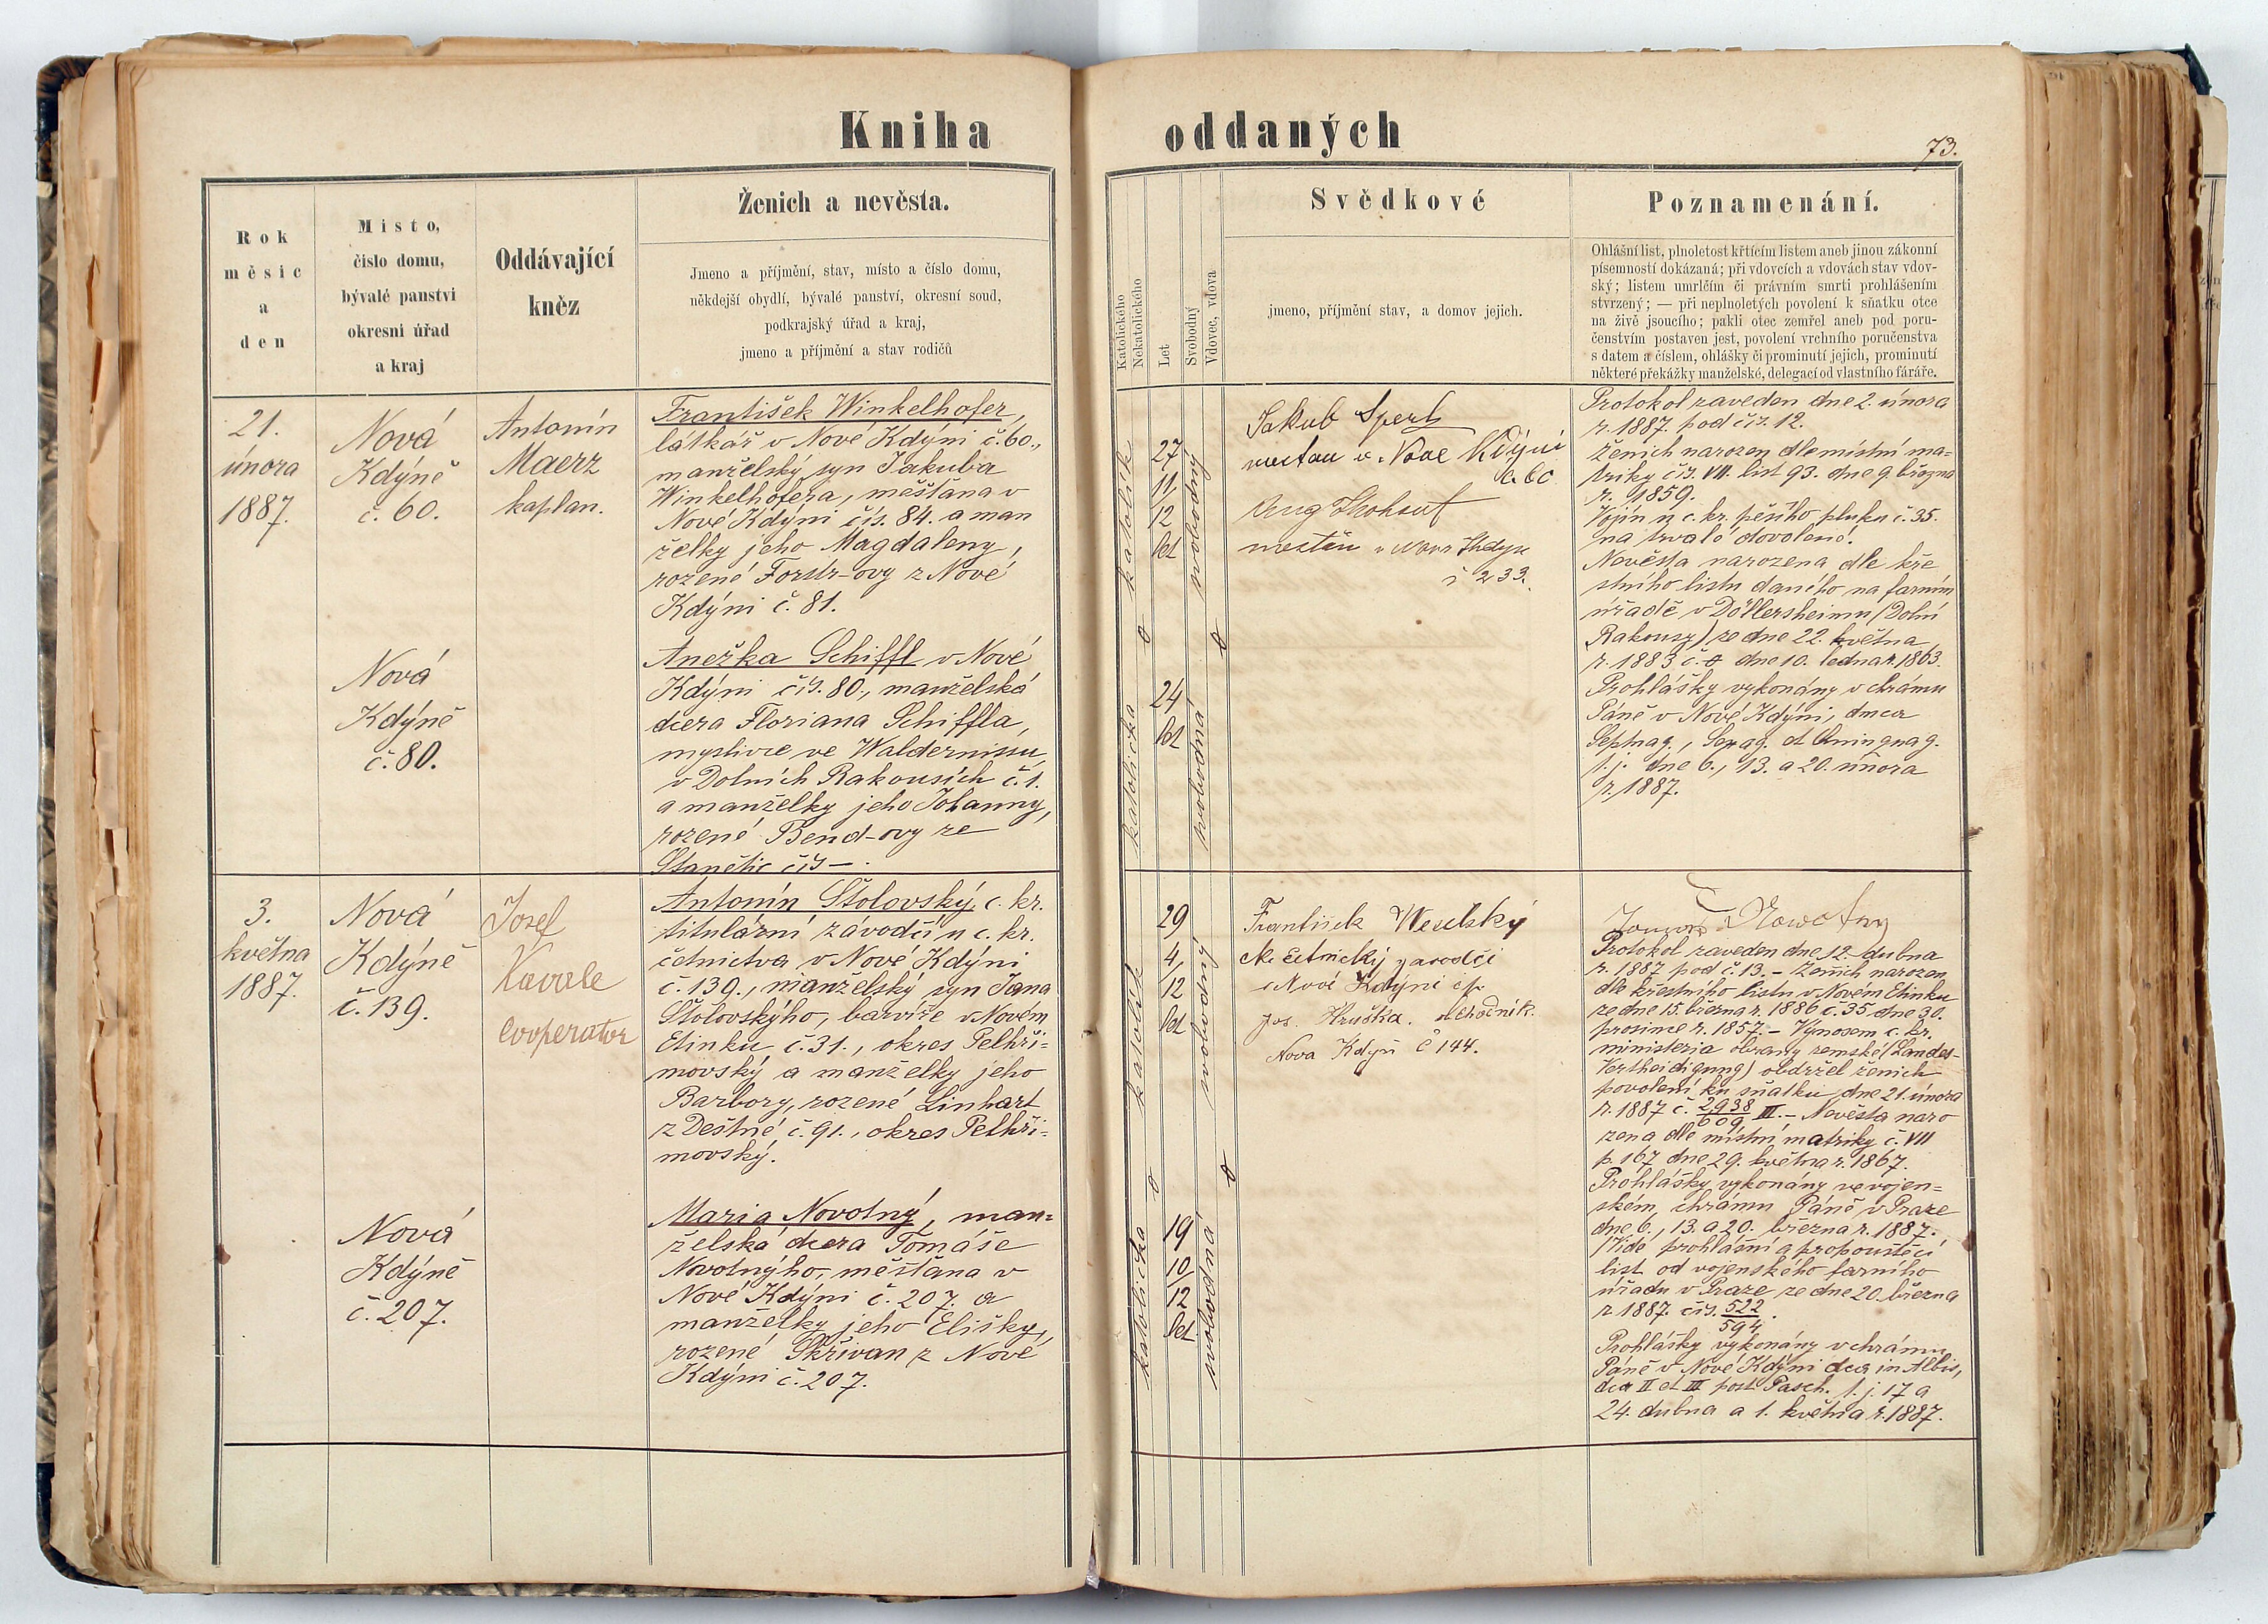 Kniha
oddaných
73.
Rok
měsíc
a
den
Místo,
číslo domu,
bývalé panství
okresní úřad
a kraj
Oddávající
kněz
Ženich a nevěsta.
Jmeno a příjmění, stav, místo a číslo domu,
někdejší obydlí, bývalé panství, okresní soud,
podkrajský úřad a kraj,
jmeno a příjmění a stav rodičů
21.
února
1887.
Nová
Kdýně
č. 60.
Antonín
Maerz
kaplan.
František Winkelhofer,
látkář v Nové Kdýni č. 60.,
manželský syn Jakuba
Winkelhofera, měšťana v
Nové Kdýni čís. 84. a man
želky jeho Magdaleny,
rozené Forstr-ovy z Nové
Kdýni č. 81.
Nová
Kdýně
č. 80.
Anežka Schiffl v Nové
Kdýni čís. 80., manželská
dcera Floriana Schiffla,
myslivce ve
v Dolních Rakousích č. 1.
a manželky jeho Johanny,
rozené Bend-ovy ze
Stanětic čís — .
3.
května
1887.
Nová
Kdýně
č. 139.
Josef
Kavale
cooperator
Antonín Stolovský, c. kr.
titulární závodčí u c. kr.
četnictva v Nové Kdýni
č. 139., manželský syn Jana
Stolovského, barvíře v Novém
Etinku č. 31., okres Pelhři-
movský a manželky jeho
Barbory, rozené Linhart
z Deštné č. 91., okres Pelhři-
movský.
Nová
Kdýně
č. 207.
Maria Novotný, man-
želská dcera Tomáše
Novotnýho, měšťana v
Nové Kdýni č. 207. a
manželky jeho Elišky,
rozené Skřivan z Nové
Kdýni č. 207.
Katolického
Nekatolického
Let
Svobodný
Vdovec, vdova
Svědkové
jmeno, příjmění stav, a domov jejich.
Poznamenání.
Ohlášní list, plnoletost křtícím listem aneb jinou zákonní
písemností dokázaná; při vdovcích a vdovách stav vdov-
ský; listem umrlčím či právním smrti prohlášením
stvrzený; — při neplnoletých povolení k sňatku otce
na živě jsoucího; pakli otec zemřel aneb pod poru-
čenstvím postaven jest, povolení vrchního poručenstva
s datem a číslem, ohlášky či prominutí jejich, prominutí
některé překážky manželské, delegací od vlastního fáráře.
katolík
27
11/
12
let
svobodný
Jakub Sperl
v Nove Kdýni
Aug
č 233.
katolická
24
let
svobodná
Protokol zaveden dne 2. února
r. 1887. pod čís. 12.
Ženich narozen dle místní ma-
triky čís. VII. list 93. dne 9. března
r. 1859.
Vojín u c. kr. pěšího pluku č. 35.
na trvalé dovolené.
Nevěsta narozena dle kře
stního listu daného na farním
úřadě v Döllersheimu (Dolní
Rakousy) ze dne 22. května
r. 1883 č. o dne 10. ledna r. 1863.
Prohlášky vykonány v chrámu
Páně v Nové Kdýni, dnica
Septuag., Sexag. et Quinquag.
t. j. dne 6., 13. a 20. února
r. 1887.
katolík
29
4/
12
let
svobodný
František Weselský
četnický závodčí
Nové Kdýni čp
Jos. Hruška. obchodník.
Nova Kdyň č 144.
katolická
19
10/
12
let
svobodná
Nowotny
Protokol zaveden dne 12. dubna
r. 1887 pod č. 13. – Ženich narozen
dle křestního listu v Novém Etinku
ze dne 15. března r. 1886 č. 35 dne 30.
prosince r. 1857. – Výnosem c. kr.
ministeria obrany zemské (Landes-
Vertheidigung) obdržel ženich
povolení ku sňatku dne 21. února
r. 1887 č. 2938/609 III. – Nevěsta naro
zena dle místní matriky č. VII
p. 167 dne 29. května r. 1867.
Prohlášky vykonány ve vojen-
ském chrámu Páně v Praze
dne 6., 13. a 20. března r. 1887.
(Vide prohlášní a propouštěcí
list od vojenského farního
úřadu v Praze ze dne 20. března
r. 1887. čís. 522/594.
Prohlášky vykonány v chrámu
Páně v Nové Kdýni dca in Albis,
dca II et III post Pasch. t. j. 17 a
24. dubna a 1. května r. 1887.